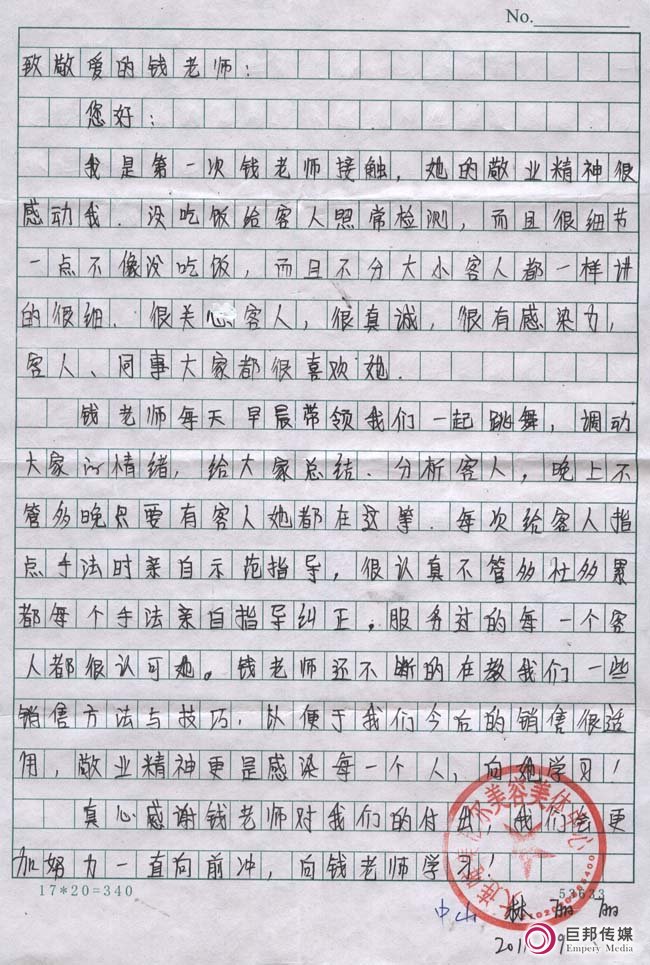 No.
致敬爱的钱老师：
您好：
我是第一次钱老师接触，她的敬业精神很
感动我．没吃饭给客人照常检测，而且很细节
一点不像没吃饭，而且不分大小客人都一样讲
的很细．很关心客人，很真诚，很有感染力，
客人、同事大家都很喜欢她．
钱老师每天早晨带领我们一起跳舞，调动
大家的情绪，给大家总结．分析客人，晚上不
管多晚只要有客人她都在这等．每次给客人指
点手法时亲自示范指导，很认真不管多忙多累
都每个手法亲自指导纠正。服务过的每一个客
人都很认可她。钱老师还不断的在教我们一些
销售方法与技巧，以便于我们今后的销售很适
用，敬业精神更是感染每一个人，向她学习！
真心感谢钱老师对我们的付出，我们会更
加努力一直向前冲，向钱老师学习！
17*20=340 53633
尔美容美体中心
中山 林丽丽
201 9
巨邦传媒
Empery Media